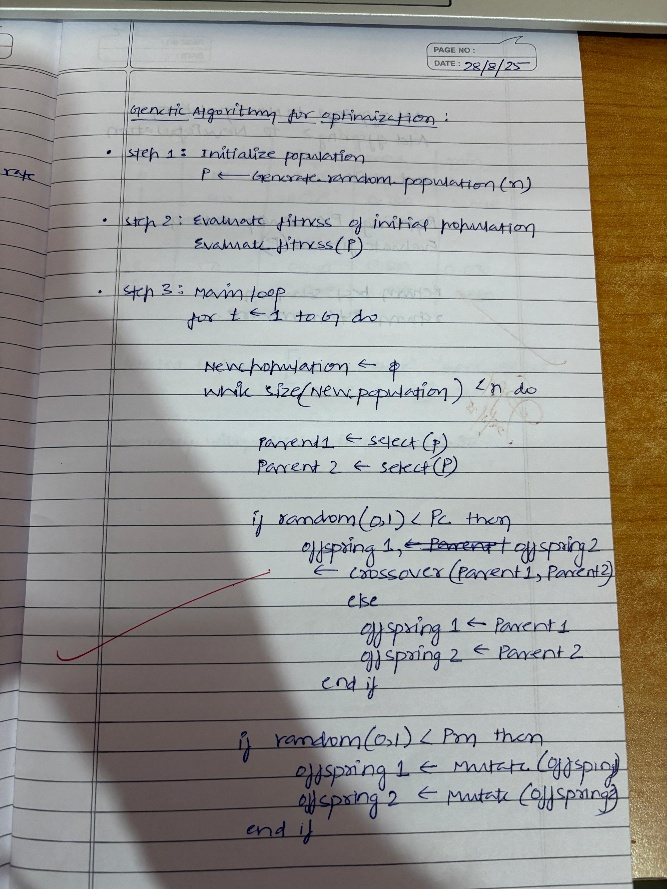 PAGE NO :
DATE : 28/8/25
Genetic Algorithm for optimization :
• Step 1 : Initialize population
P ← Generate random population (n)
• Step 2 : Evaluate fitness of initial population
Evaluate fitness (P)
• Step 3 : Main loop
for t ← 1 to G do
New population ← φ
while size (New population) < n do
Parent 1 ← select (P)
Parent 2 ← select (P)
if random (0,1) < Pc then
offspring 1, offspring 2
← crossover (Parent 1, Parent 2)
else
offspring 1 ← Parent 1
offspring 2 ← Parent 2
end if
if random (0,1) < Pm then
offspring 1 ← Mutate (offspring)
offspring 2 ← Mutate (offspring 2)
end if